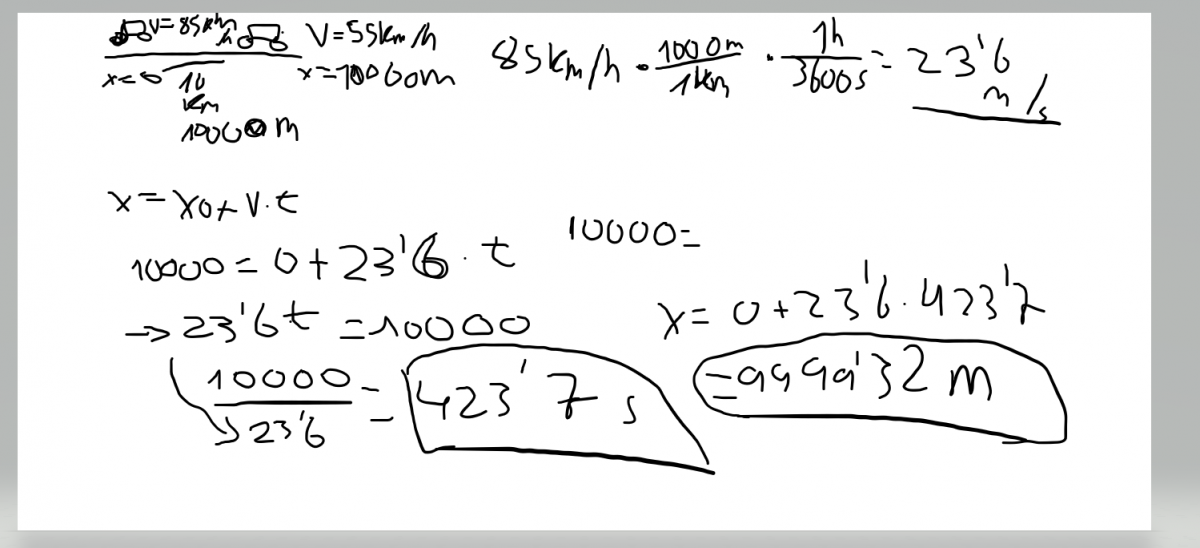 V=85km/h V=55km/h
x=0 10 km x=10000m
10000m
85km/h · 1000m/1km · 1h/3600s = 23'6 m/s
x=x0+v·t
10000=0+23'6·t
10000=
→23'6t=10000
10000/23'6 = 423'7 s
x=0+23'6·423'7
=9999'32 m